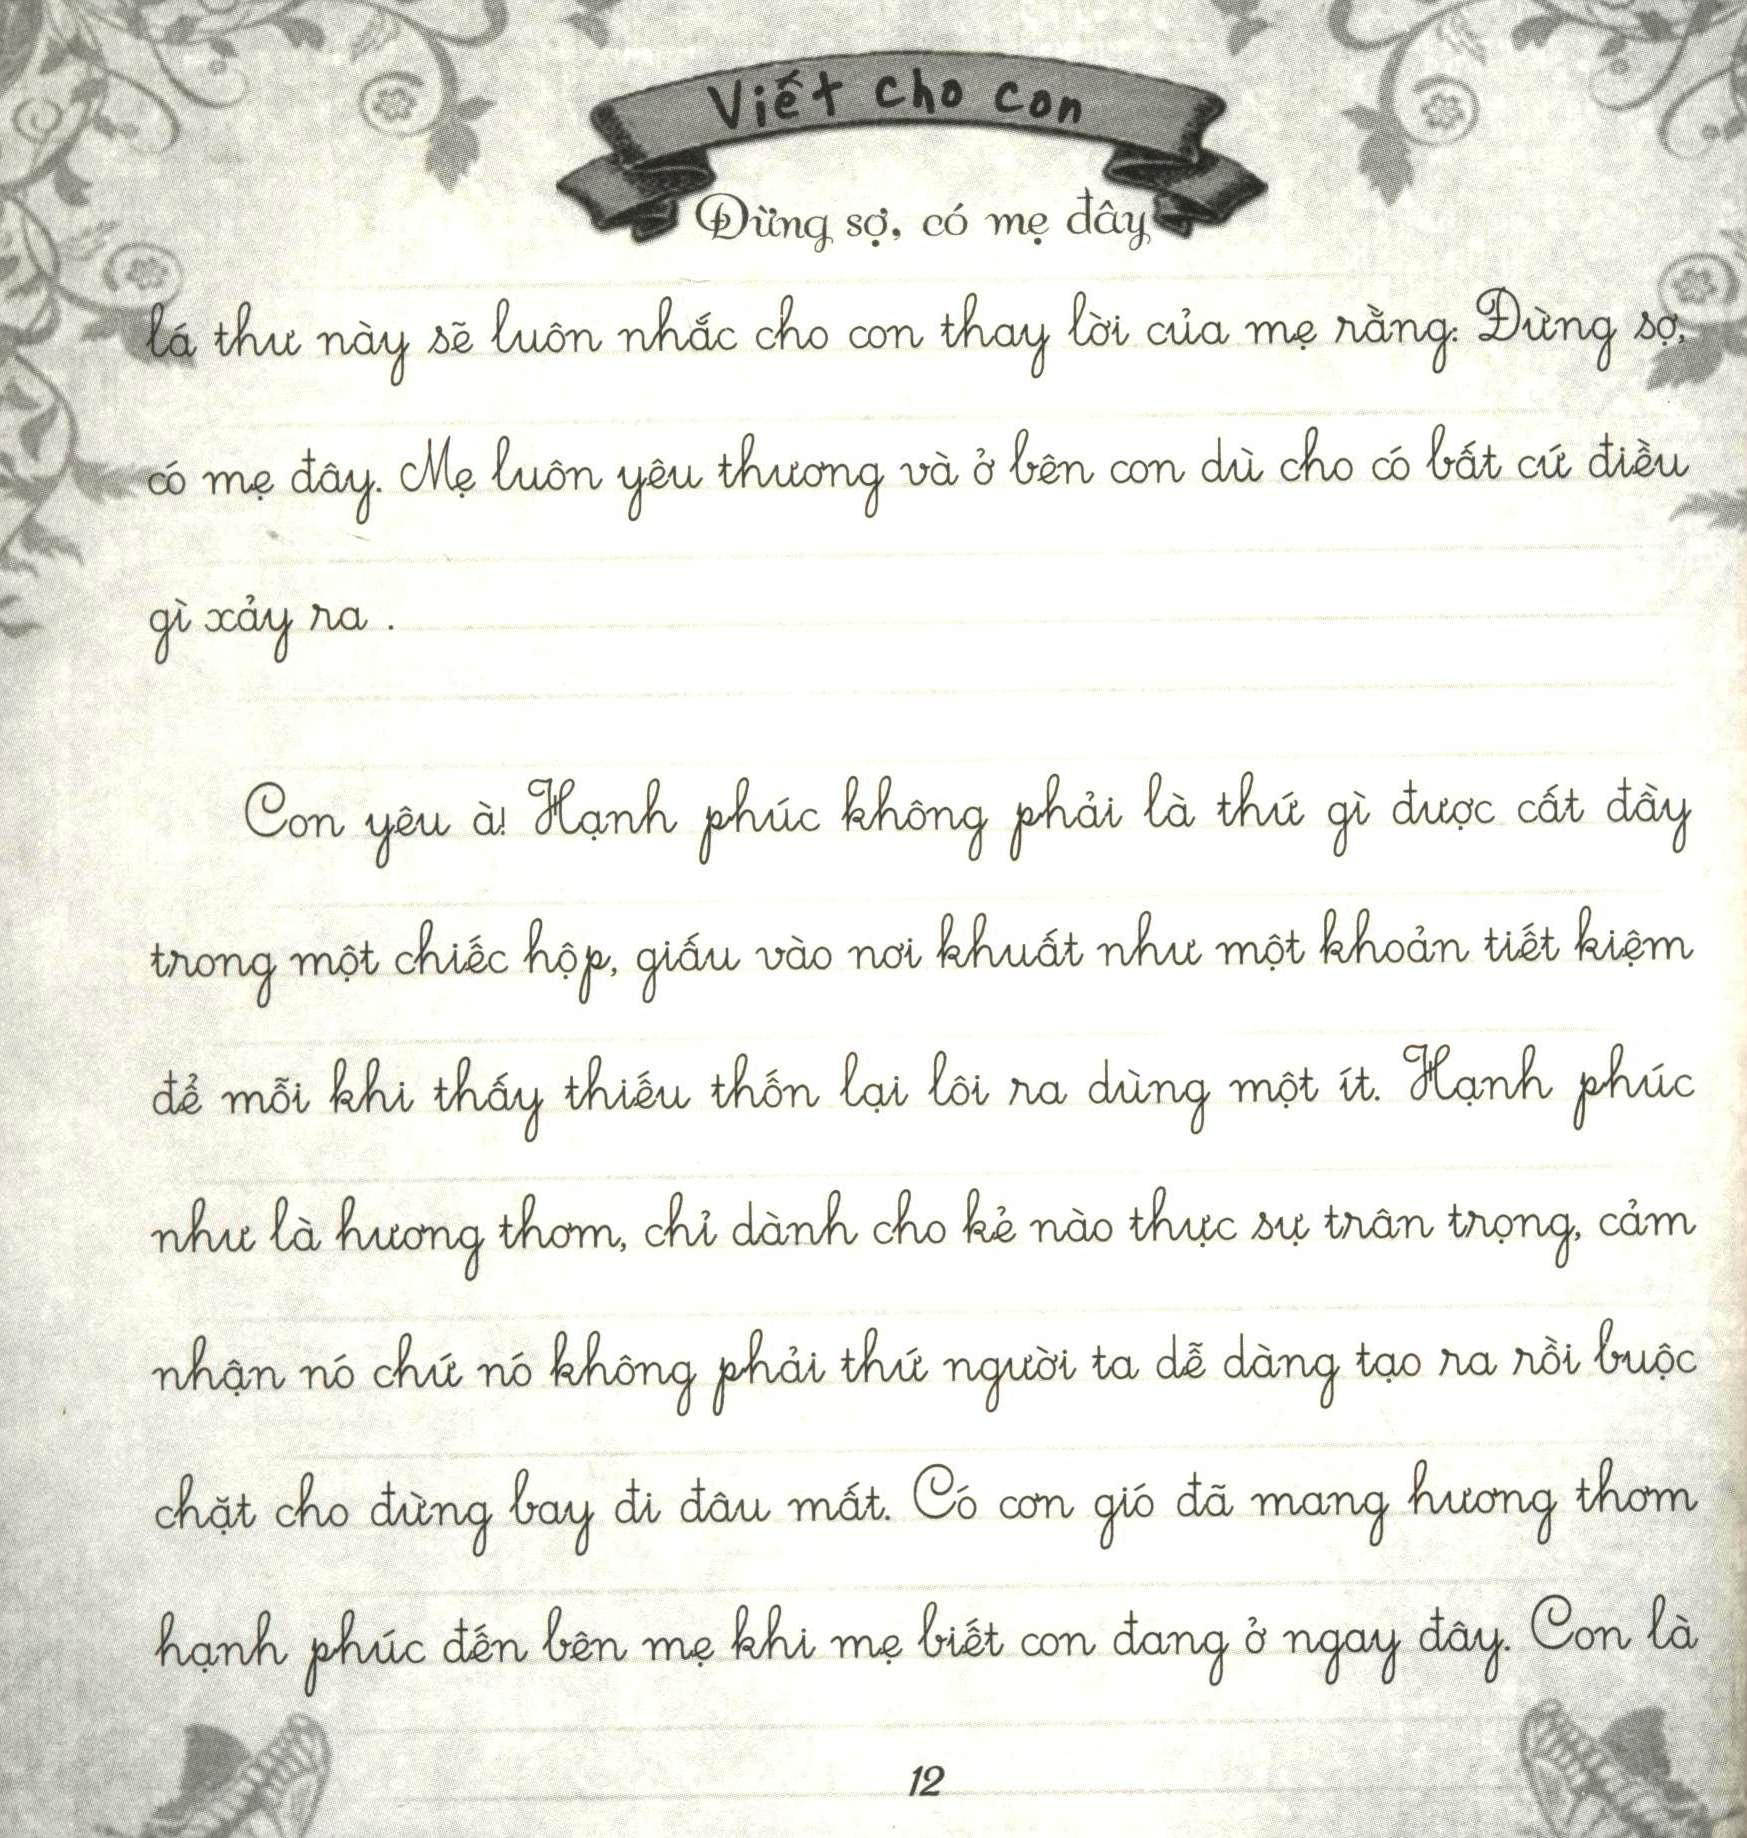 Viết cho con
Đừng sợ, có mẹ đây
lá thư này sẽ luôn nhắc cho con thay lời của mẹ rằng: Đừng sợ,
có mẹ đây. Mẹ luôn yêu thương và ở bên con dù cho có bất cứ điều
gì xảy ra .
Con yêu à! Hạnh phúc không phải là thứ gì được cất đầy
trong một chiếc hộp, giấu vào nơi khuất như một khoản tiết kiệm
để mỗi khi thấy thiếu thốn lại lôi ra dùng một ít. Hạnh phúc
như là hương thơm, chỉ dành cho kẻ nào thực sự trân trọng, cảm
nhận nó chứ nó không phải thứ người ta dễ dàng tạo ra rồi buộc
chặt cho đừng bay đi đâu mất. Có cơn gió đã mang hương thơm
hạnh phúc đến bên mẹ khi mẹ biết con đang ở ngay đây. Con là
12